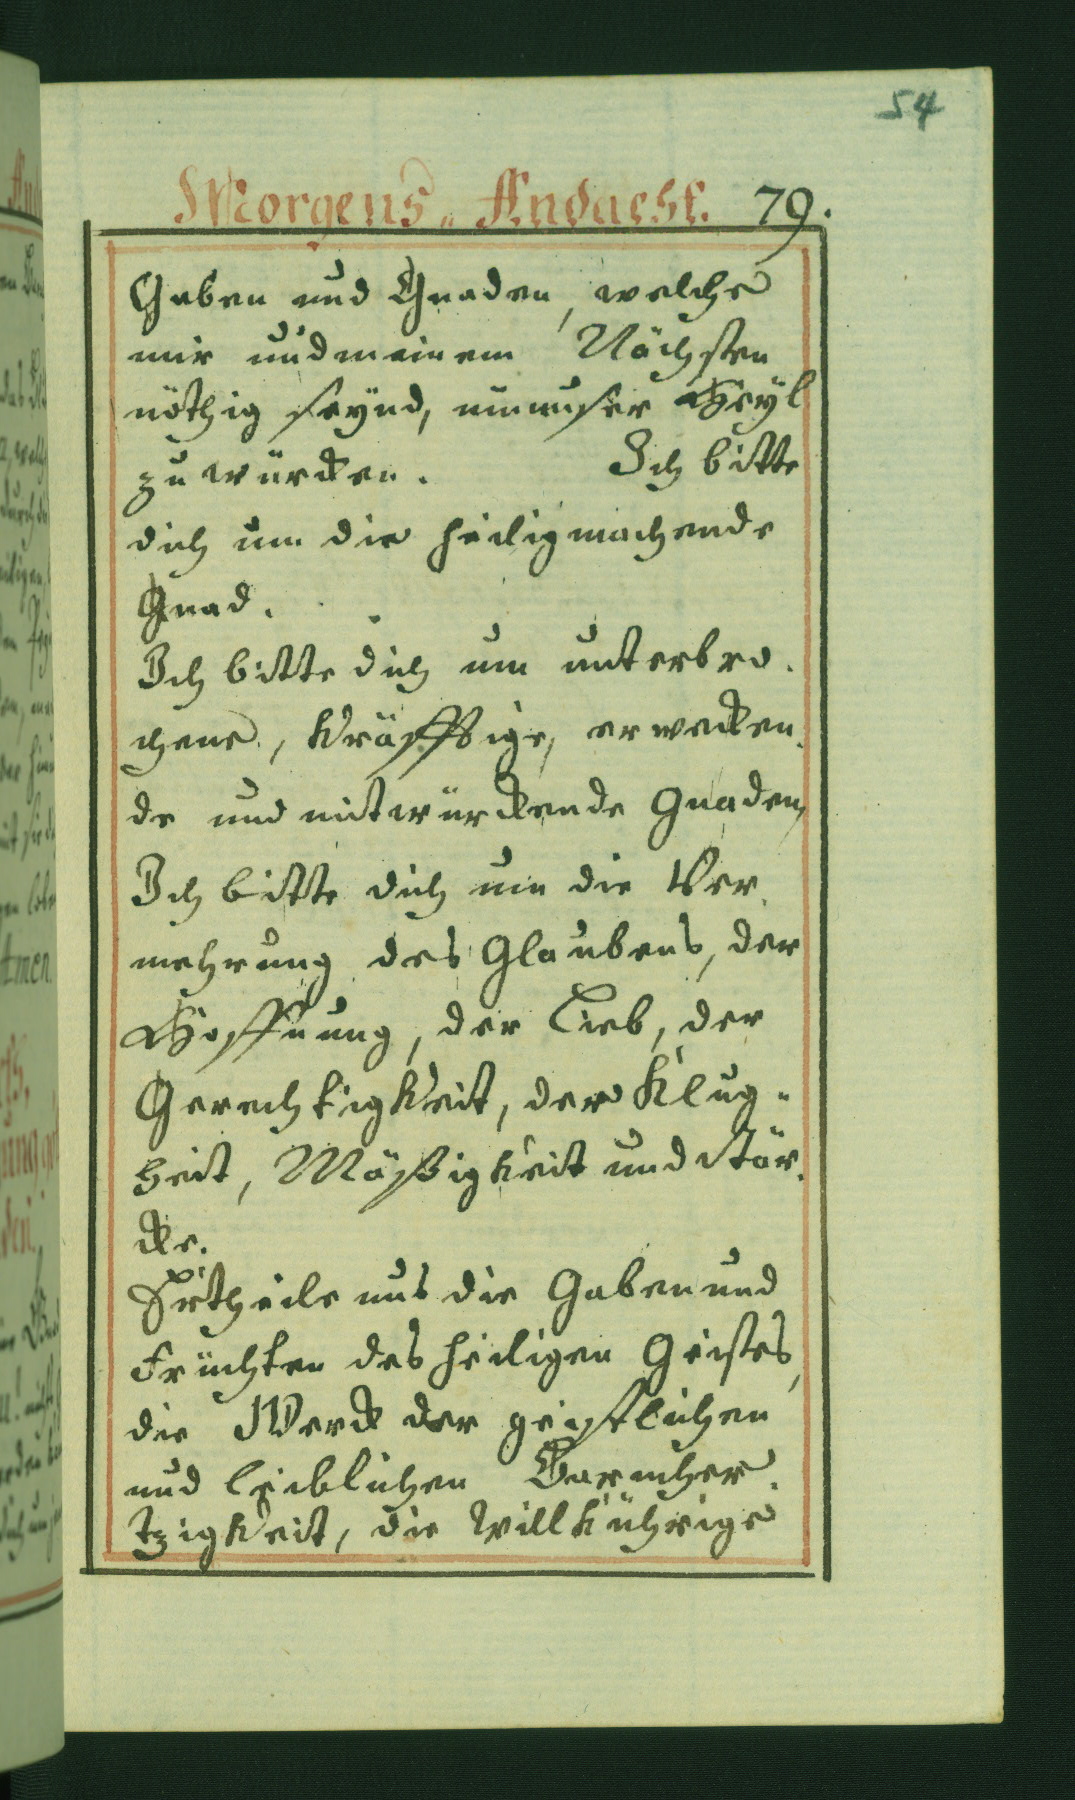 54
Morgens„ Andacht. 79.
Gaben und Gnaden, welche
mir und meinem Nächsten
nöthig seynd, um unser Heyl
zu würcken. Ich bitte
dich um die heiligmachende
Gnad.
Ich bitte dich um unterbro„
chene, kräfftige, erwecken„
de und mitwürckende Gnaden,
Ich bitte dich um die Ver„
mehrung des Glaubens, der
Hoffnung, der Lieb, der
Gerechtigkeit, der Klug„
heit, Mäßigkeit und Stär„
cke.
Ertheile uns die Gaben und
Früchten des heiligen Geistes,
die Werck der geistlichen
und leiblichen Barmher„
tzigkeit, die Willkührige